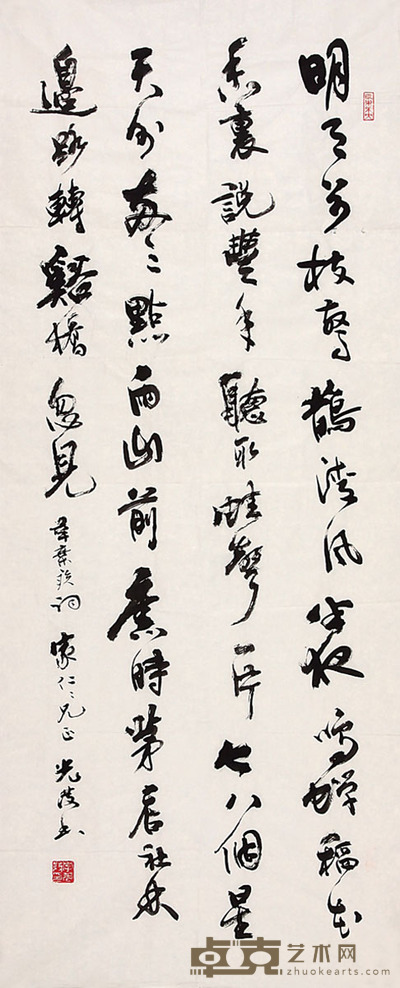 明月別枝驚鵲清風半夜鳴蟬稻花
香裏說豐年聽取蛙聲一片七八個星
天外兩三點雨山前舊時茅店社林
邊路轉谿橋忽見
辛棄疾詞 家仁仁兄正 光 書
卓克艺术网
zhuokearts.com